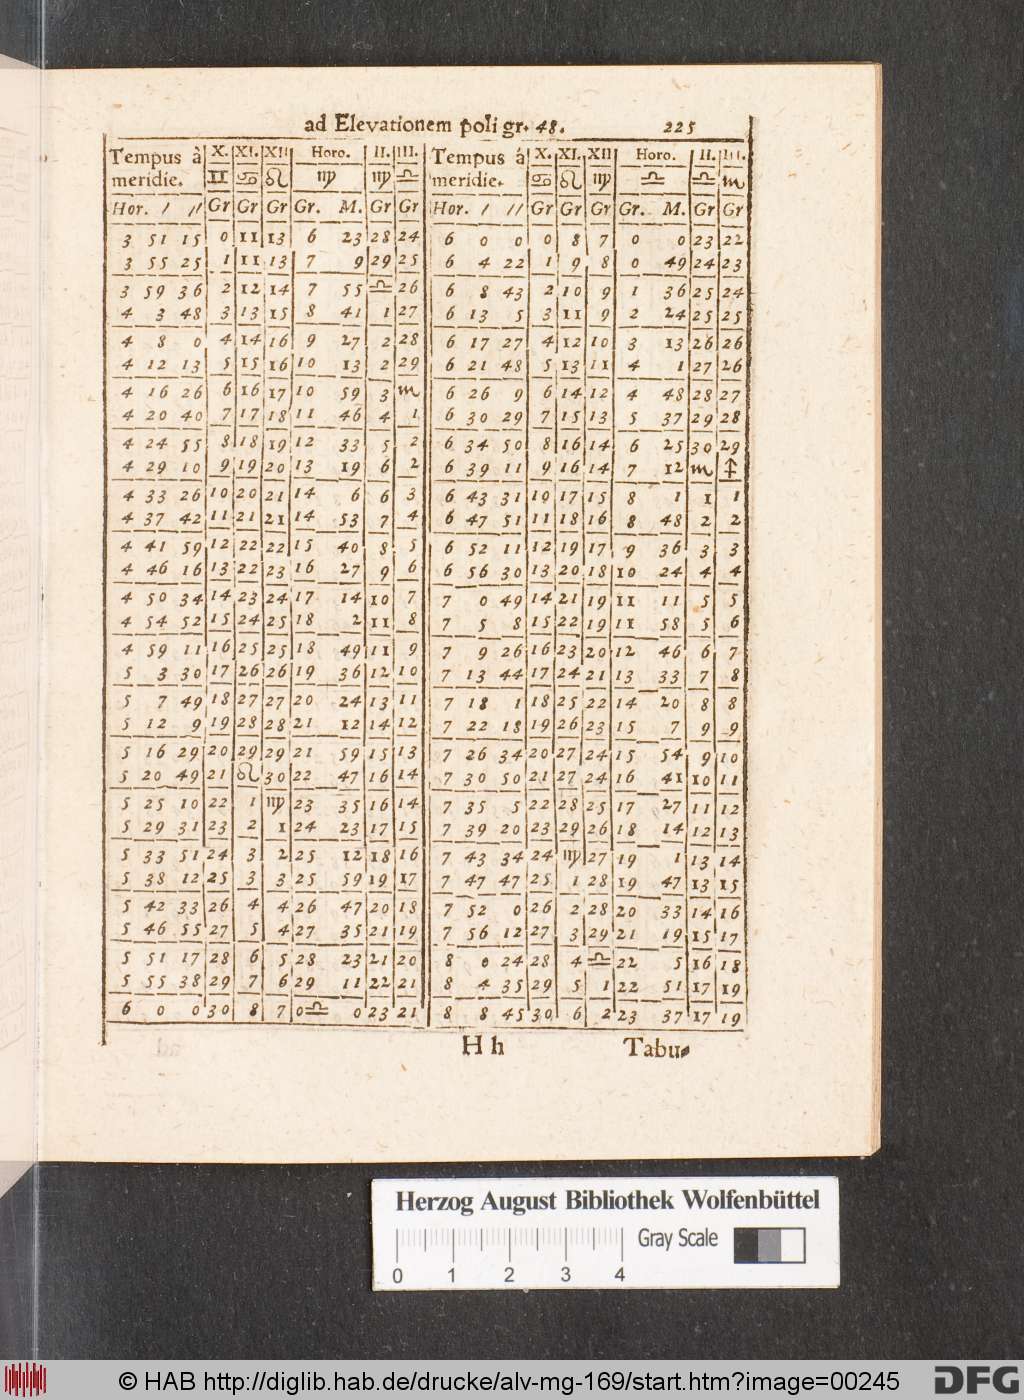 ad Elevationem poli gr. 48. 225
Tempus à X. XI. XII Horo. II. III. Tempus à X. XI. XII Horo. II. III.
meridie. ♊ ♋ ♌ ♍ ♍ ♎ meridie. ♋ ♌ ♍ ♎ ♎ ♏
Hor. / // Gr Gr Gr Gr. M. Gr Gr Hor. / // Gr Gr Gr Gr. M. Gr Gr
3 51 15 0 11 13 6 23 28 24 6 0 0 0 8 7 0 0 23 22
3 55 25 1 11 13 7 9 29 25 6 4 22 1 9 8 0 49 24 23
3 59 36 2 12 14 7 55 ♎ 26 6 8 43 2 10 9 1 36 25 24
4 3 48 3 13 15 8 41 1 27 6 13 5 3 11 9 2 24 25 25
4 8 0 4 14 16 9 27 2 28 6 17 27 4 12 10 3 13 26 26
4 12 13 5 15 16 10 13 2 29 6 21 48 5 13 11 4 1 27 26
4 16 26 6 16 17 10 59 3 ♏ 6 26 9 6 14 12 4 48 28 27
4 20 40 7 17 18 11 46 4 1 6 30 29 7 15 13 5 37 29 28
4 24 55 8 18 19 12 33 5 2 6 34 50 8 16 14 6 25 30 29
4 29 10 9 19 20 13 19 6 2 6 39 11 9 16 14 7 12 ♏ ♐
4 33 26 10 20 21 14 6 6 3 6 43 31 10 17 15 8 1 1 1
4 37 42 11 21 21 14 53 7 4 6 47 51 11 18 16 8 48 2 2
4 41 59 12 22 22 15 40 8 5 6 52 11 12 19 17 9 36 3 3
4 46 16 13 22 23 16 27 9 6 6 56 30 13 20 18 10 24 4 4
4 50 34 14 23 24 17 14 10 7 7 0 49 14 21 19 11 11 5 5
4 54 52 15 24 25 18 2 11 8 7 5 8 15 22 19 11 58 5 6
4 59 11 16 25 25 18 49 11 9 7 9 26 16 23 20 12 46 6 7
5 3 30 17 26 26 19 36 12 10 7 13 44 17 24 21 13 33 7 8
5 7 49 18 27 27 20 24 13 11 7 18 1 18 25 22 14 20 8 8
5 12 9 19 28 28 21 12 14 12 7 22 18 19 26 23 15 7 9 9
5 16 29 20 29 29 21 59 15 13 7 26 34 20 27 24 15 54 9 10
5 20 49 21 ♌ 30 22 47 16 14 7 30 50 21 27 24 16 41 10 11
5 25 10 22 1 ♍ 23 35 16 14 7 35 5 22 28 25 17 27 11 12
5 29 31 23 2 1 24 23 17 15 7 39 20 23 29 26 18 14 12 13
5 33 51 24 3 2 25 12 18 16 7 43 34 24 ♍ 27 19 1 13 14
5 38 12 25 3 3 25 59 19 17 7 47 47 25 1 28 19 47 13 15
5 42 33 26 4 4 26 47 20 18 7 52 0 26 2 28 20 33 14 16
5 46 55 27 5 4 27 35 21 19 7 56 12 27 3 29 21 19 15 17
5 51 17 28 6 5 28 23 21 20 8 0 24 28 4 ♎ 22 5 16 18
5 55 38 29 7 6 29 11 22 21 8 4 35 29 5 1 22 51 17 19
6 0 0 30 8 7 0♎ 0 23 21 8 8 45 30 6 2 23 37 17 19
H h Tabu=
Herzog August Bibliothek Wolfenbüttel
Gray Scale
0 1 2 3 4
© HAB http://diglib.hab.de/drucke/alv-mg-169/start.htm?image=00245
DFG